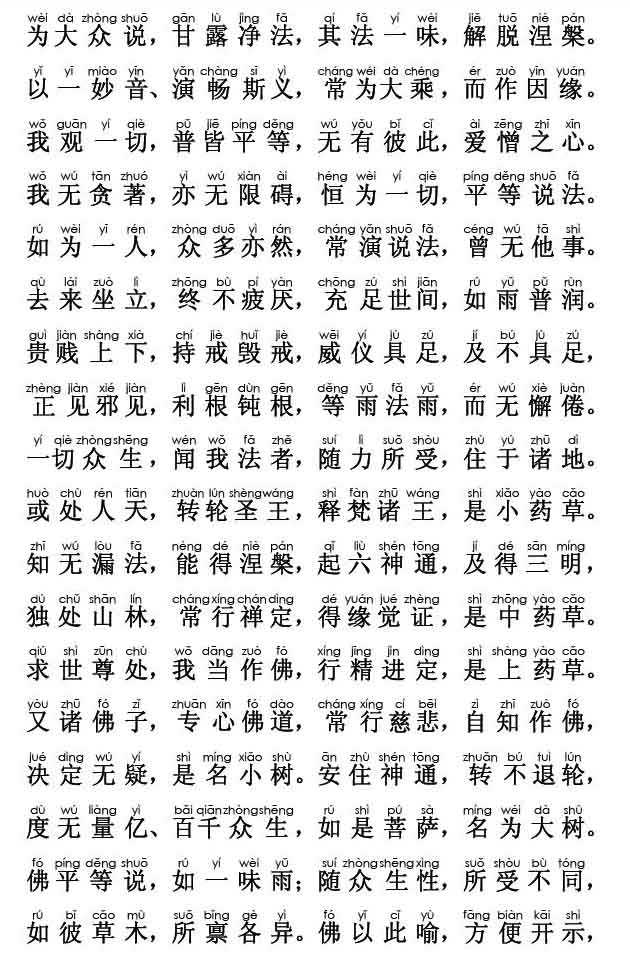 wèi dà zhòng shuō gān lù jìng fǎ qí fǎ yí wèi jiě tuō niè pán
为大众说，甘露净法，其法一味，解脱涅槃。
yǐ yī miào yīn yǎn chàng sī yì cháng wéi dà chéng ér zuò yīn yuán
以一妙音、演畅斯义，常为大乘，而作因缘。
wǒ guān yí qiè pǔ jiē píng děng wú yǒu bǐ cǐ ài zēng zhī xīn
我观一切，普皆平等，无有彼此，爱憎之心。
wǒ wú tān zhuó yì wú xiàn ài héng wèi yí qiè píng děng shuō fǎ
我无贪著，亦无限碍，恒为一切，平等说法。
rú wèi yī rén zhòng duō yì rán cháng yǎn shuō fǎ céng wú tā shì
如为一人，众多亦然，常演说法，曾无他事。
qù lái zuò lì zhōng bù pí yàn chōng zú shì jiān rú yǔ pǔ rùn
去来坐立，终不疲厌，充足世间，如雨普润。
guì jiàn shàng xià chí jiè huǐ jiè wēi yí jù zú jí bú jù zú
贵贱上下，持戒毁戒，威仪具足，及不具足，
zhèng jiàn xié jiàn lì gēn dùn gēn děng yǔ fǎ yǔ ér wú xiè juàn
正见邪见，利根钝根，等雨法雨，而无懈倦。
yí qiè zhòng shēng wén wǒ fǎ zhě suí lì suǒ shòu zhù yú zhū dì
一切众生，闻我法者，随力所受，住于诸地。
huò chù rén tiān zhuàn lún shèng wáng shì fàn zhū wáng shì xiǎo yào cǎo
或处人天，转轮圣王，释梵诸王，是小药草。
zhī wú lòu fǎ néng dé niè pán qǐ liù shén tōng jí dé sān míng
知无漏法，能得涅槃，起六神通，及得三明，
dú chǔ shān lín cháng xíng chán dìng dé yuán jué zhèng shì zhōng yào cǎo
独处山林，常行禅定，得缘觉证，是中药草。
qiú shì zūn chù wǒ dāng zuò fó xíng jīng jìn dìng shì shàng yào cǎo
求世尊处，我当作佛，行精进定，是上药草。
yòu zhū fó zǐ zhuān xīn fó dào cháng xíng cí bēi zì zhī zuò fó
又诸佛子，专心佛道，常行慈悲，自知作佛，
jué dìng wú yí shì míng xiǎo shù ān zhù shén tōng zhuǎn bú tuì lún
决定无疑，是名小树。安住神通，转不退轮，
dù wú liàng yì bǎi qiān zhòng shēng rú shì pú sà míng wéi dà shù
度无量亿、百千众生，如是菩萨，名为大树。
fó píng děng shuō rú yí wèi yǔ suí zhòng shēng xìng suǒ shòu bù tóng
佛平等说，如一味雨；随众生性，所受不同，
rú bǐ cǎo mù suǒ bǐng gè yì fó yǐ cǐ yù fāng biàn kāi shì
如彼草木，所禀各异。佛以此喻，方便开示，